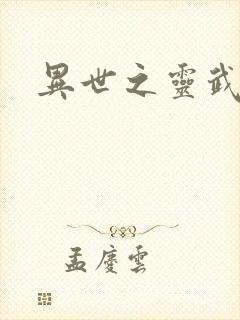 異世之靈武
孟慶雲